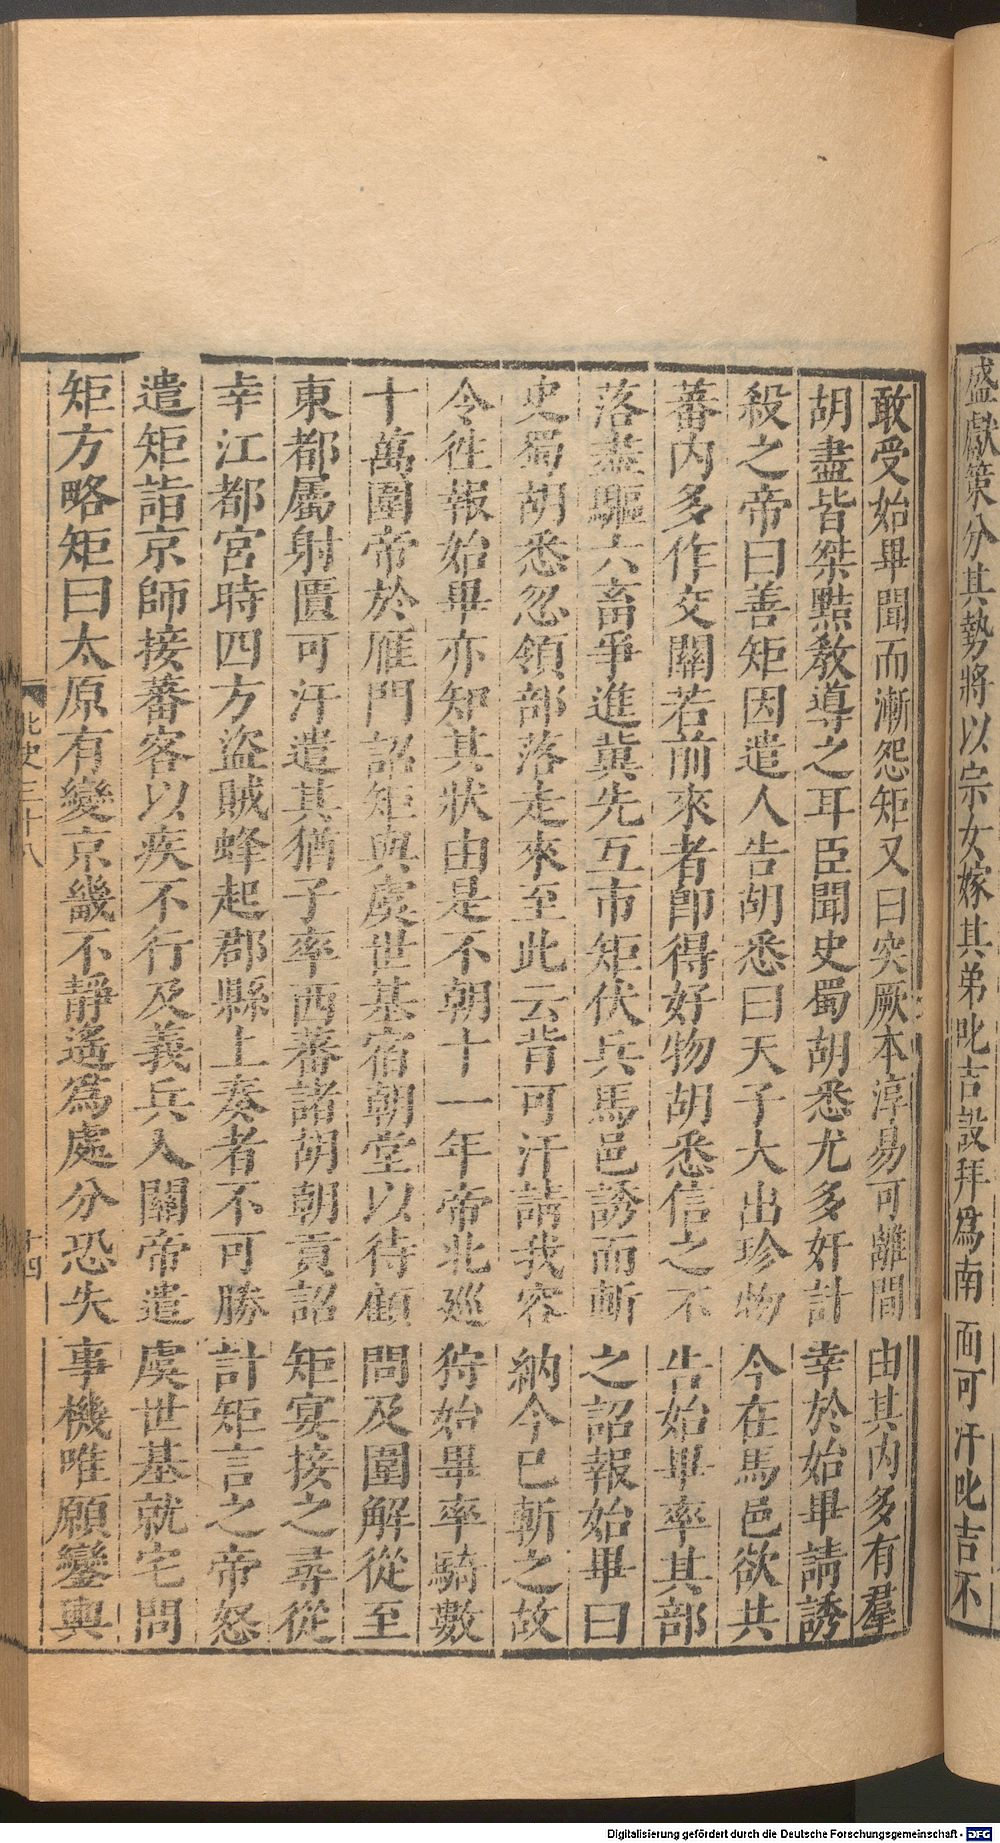 盛獻策分其勢將以宗女嫁其弟叱吉設拜爲南面可汗叱吉不
敢受始畢聞而漸怨矩又曰突厥本淳易可離間由其内多有羣
胡盡皆桀黠敎導之耳臣聞史蜀胡悉尤多奸計幸於始畢請誘
殺之帝曰善矩因遣人告胡悉曰天子大出珍物今在馬邑欲共
蕃内多作交關若前來者卽得好物胡悉信之不告始畢率其部
落盡驅六畜爭進冀先互市矩伏兵馬邑誘而斬之詔報始畢曰
史蜀胡悉忽領部落走來至此云背可汗請我容納今已斬之故
令徃報始畢亦知其狀由是不朝十一年帝北廵狩始畢率騎數
十萬圍帝於雁門詔矩與虞世基宿朝堂以待顧問及圍解從至
東都屬射匱可汗遣其猶子率西蕃諸胡朝貢詔矩宴接之尋從
幸江都宮時四方盜賊蜂起郡縣上奏者不可勝計矩言之帝怒
遣矩詣京師接蕃客以疾不行及義兵入關帝遣虞世基就宅問
矩方略矩曰太原有變京畿不靜遙爲處分恐失事機唯願鑾輿
北史三十八
十四
Digitalisierung gefördert durch die Deutsche Forschungsgemeinschaft - DFG